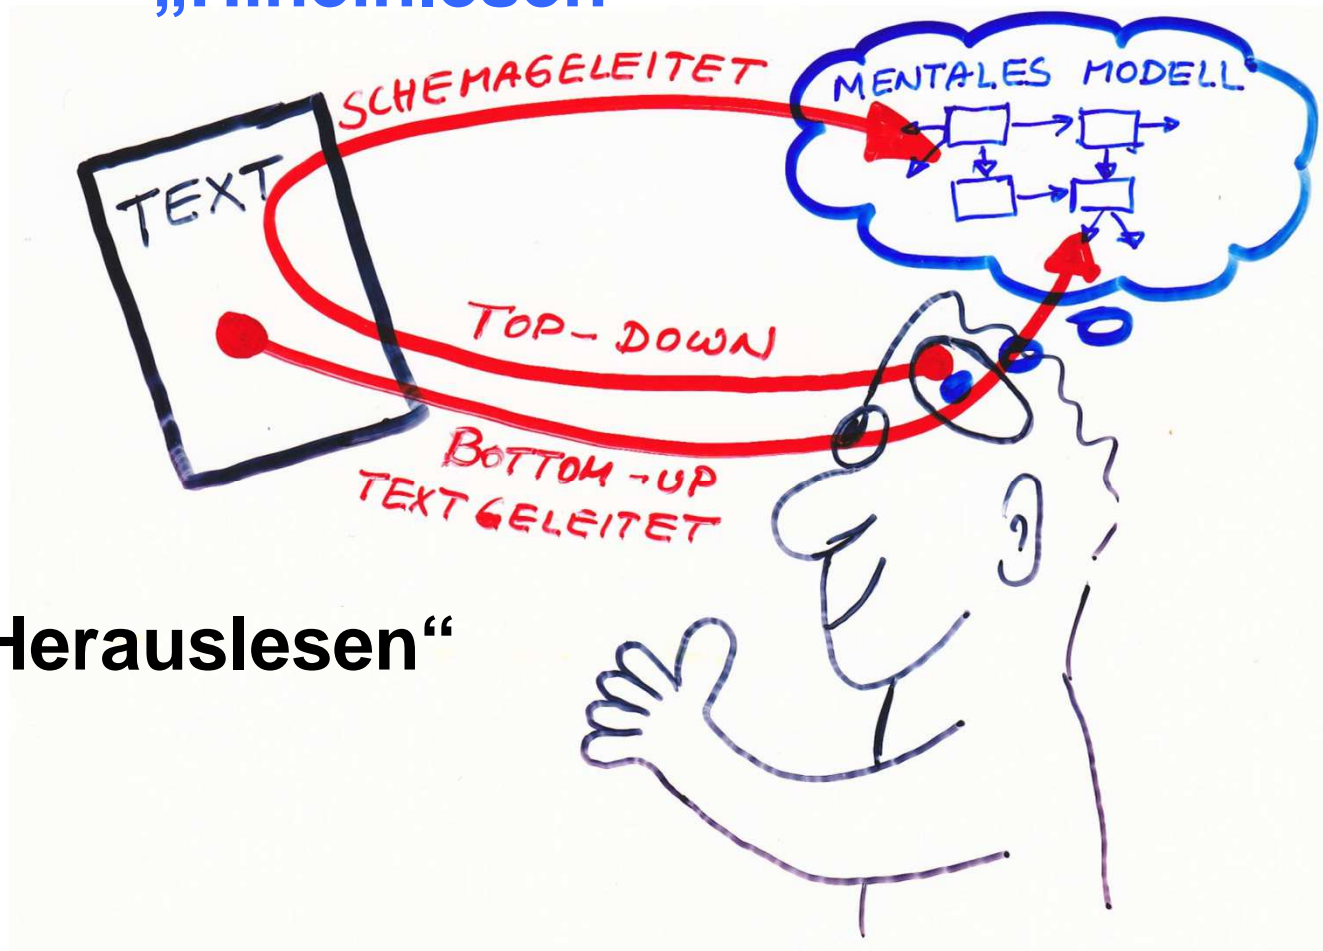 „Hineinlesen
SCHEMAGELEITET
MENTALES MODELL
TEXT
TOP-DOWN
BOTTOM-UP
TEXTGELEITET
Herauslesen“